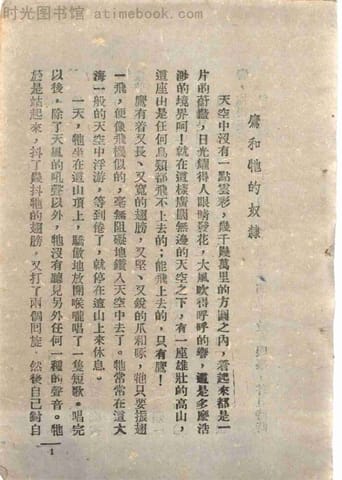 时光图书馆 - atimebook.com
鷹和牠的奴隸
天空中沒有一點雲彩，幾千幾萬里的方圓之內，看起來都是一
片的蔚藍，日光耀得人眼睛發花，大風吹得呼呼的響，這是多麽浩
渺的境界呵！就在這樣廣闊無邊的天空之下，有一座雄壯的高山，
這座山是任何鳥類都飛不上去的；能飛上去的，只有鷹！
鷹有着又長、又寬的翅膀，又堅、又銳的爪和啄，牠只要振翅
一飛，便像飛機似的，毫無阻礙地鑽入天空中去了。牠常常在這大
海一般的天空中浮游，等到倦了，就停在這山上來休息。
一天，牠坐在這山頂上，驕傲地放開喉嚨唱了一隻短歌。唱完
以後，除了天風的吼聲以外，牠沒有聽見另外任何一種的聲音。牠
於是站起來，抖了幾抖牠的翅膀，又打了兩個囘旋，然後自己對自
1